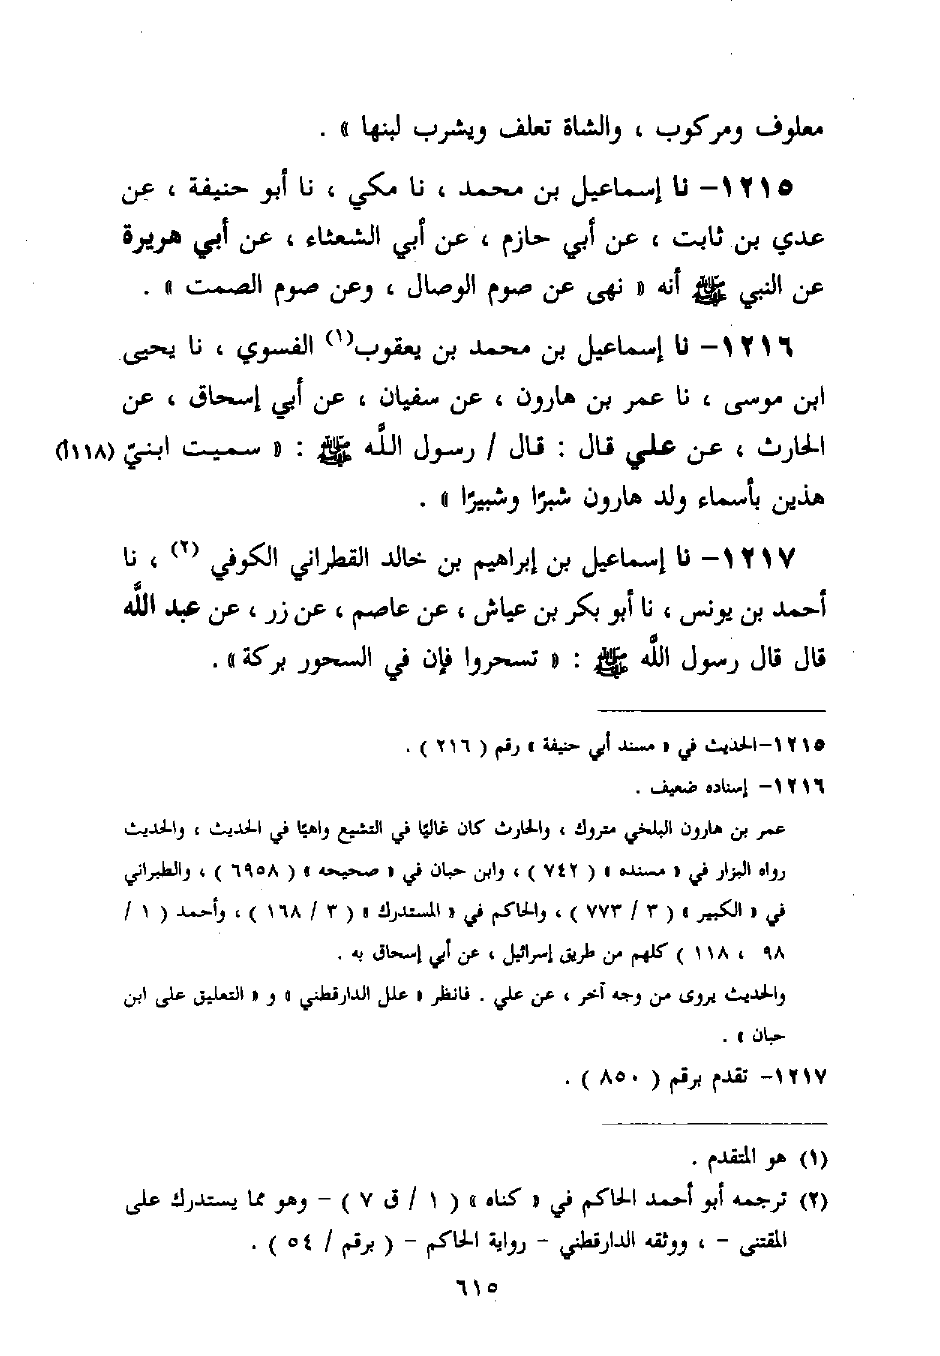 معلوف ومركوب ، والشاة تعلف ويشرب لبنها » .
١٢١٥- نا إسماعيل بن محمد ، نا مكي ، نا أبو حنيفة ، عن
عدي بن ثابت ، عن أبي حازم ، عن أبي الشعثاء ، عن أبي هريرة
عن النبي ﷺ أنه « نهى عن صوم الوصال ، وعن صوم الصمت » .
١٢١٦- نا إسماعيل بن محمد بن يعقوب(١) الفسوي ، نا يحيى
ابن موسى ، نا عمر بن هارون ، عن سفيان ، عن أبي إسحاق ، عن
الحارث ، عن علي قال : قال / رسول اللَّه ﷺ : « سميت ابنيّ (١١٨أ)
هذين بأسماء ولد هارون شبرًا وشبيرًا » .
١٢١٧- نا إسماعيل بن إبراهيم بن خالد القطراني الكوفي (٢) ، نا
أحمد بن يونس ، نا أبو بكر بن عياش ، عن عاصم ، عن زر ، عن عبد اللَّه
قال قال رسول اللَّه ﷺ : « تسحروا فإن في السحور بركة» .
١٢١٥-الحديث في « مسند أبي حنيفة » رقم ( ٢١٦ ) .
١٢١٦- إسناده ضعيف .
عمر بن هارون البلخي متروك ، والحارث كان غاليًا في التشيع واهيًا في الحديث ، والحديث
رواه البزار في « مسنده » ( ٧٤٢ ) ، وابن حبان في « صحيحه » ( ٦٩٥٨ ) ، والطبراني
في « الكبير » ( ٣ / ٧٧٣ ) ، والحاكم في « المستدرك » ( ٣ / ١٦٨ ) ، وأحمد ( ١ /
٩٨ ، ١١٨ ) كلهم من طريق إسرائيل ، عن أبي إسحاق به .
والحديث يروى من وجه آخر ، عن علي . فانظر « علل الدارقطني » و « التعليق على ابن
حبان » .
١٢١٧- تقدم برقم ( ٨٥٠ ) .
(١) هو المتقدم .
(٢) ترجمه أبو أحمد الحاكم في « كناه » ( ١ / ق ٧ ) - وهو مما يستدرك على
المقتنى - ، ووثقه الدارقطني - رواية الحاكم - ( برقم / ٥٤ ) .
٦١٥